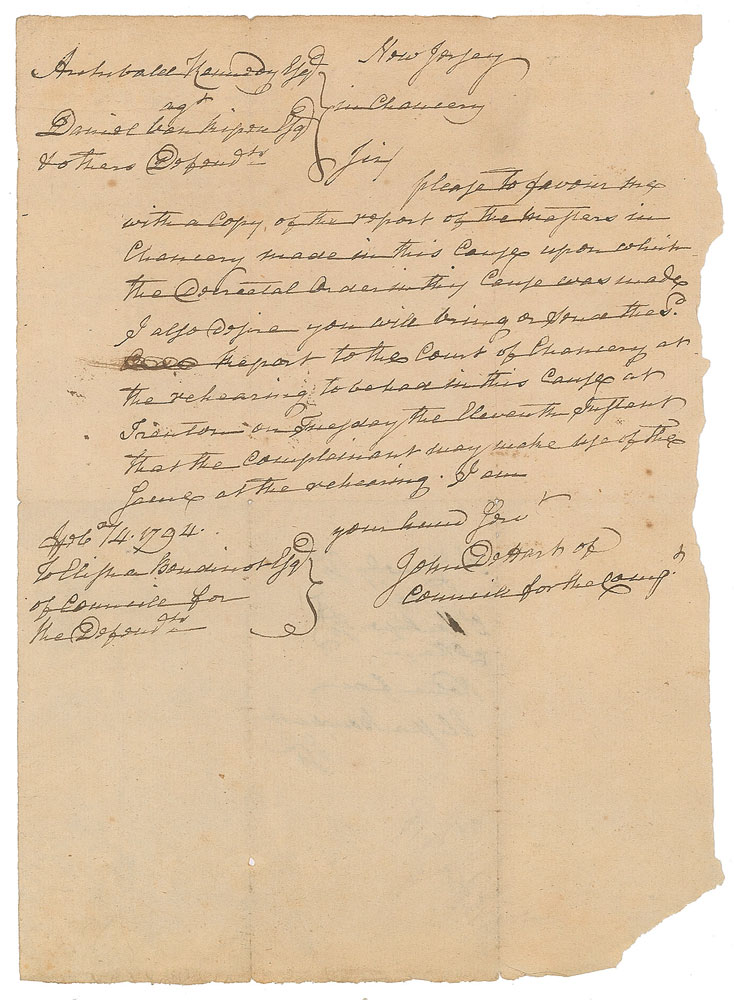 Archibald Kennedy Esqr
agt
Daniel Van Ripen Esqr
& others Defendts
New Jersey
in Chancery
Sir/
please to favour me
with a Copy of the report of the Masters in
Chancery made in this Cause upon which
the Decretal Order in this Cause was made
I also desire you will bring or send the sd.
Report to the Court of Chancery at
the rehearing to be had in this Cause at
Trenton on Tuesday the Eleventh Instant
that the Complainant may make use of the
Same at the rehearing. I am
your hum Servt
John DeHart of
Council for the Compt
4. 1794.
To Elisha Boudinot Esqr
of Council for
the Defendts